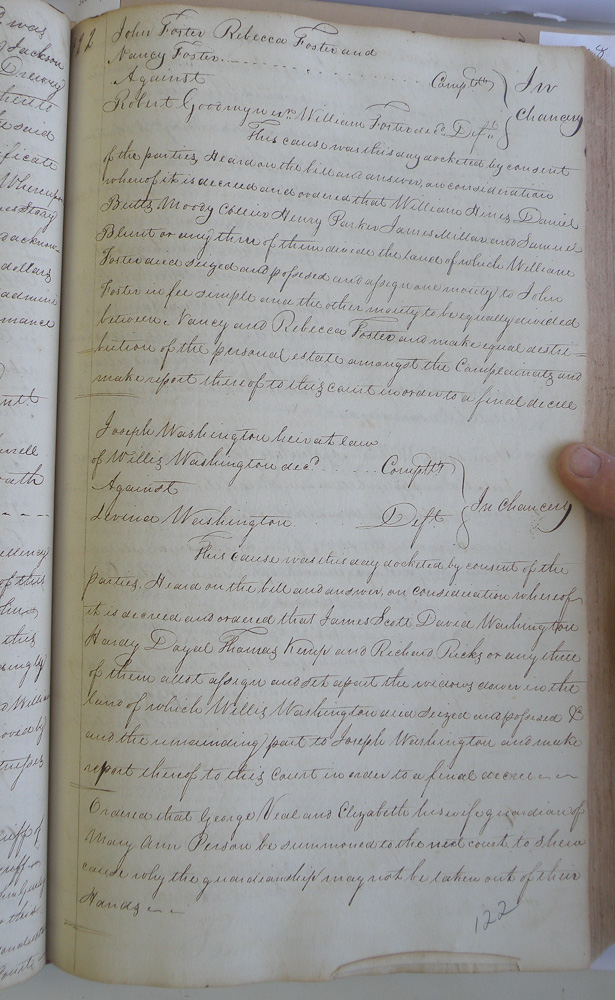 John Foster Rebecca Foster and
Nancy Foster Complts
Against In Chancery
Robert Goodwyn William Foster decd Deft
This cause was this day docketed by consent
of the parties, Heard on the bill and answer, on consideration
whereof it is decreed and ordered that William Hines, Daniel
Butts Moody Henry Parker James Millar and Samuel
Blunt or any three of them divide the land of which William
Foster died seized and possessed and assign one moiety to John
Foster in fee simple and the other moiety to be equally divided
between Nancy and Rebecca Foster and make equal destri=
bution of the personal estate amongst the Complainants and
make report thereof to this court in order to a final decree
Joseph Washington heir at law
of Willis Washington decd Complts
Against In Chancery
Levina Washington Deft
This cause was this day docketed by consent of the
parties, Heard on the bill and answer, on consideration whereof
it is decreed and ordered that James Scott David Washington
Hardy Doyal Thomas Kemp and Richard Ricks or any three
of them allot assign and set apart the widows dower in the
land of which Willis Washington died seized and possessed &
and the remainding part to Joseph Washington and make
report thereof to this Court in order to a final decree
Ordered that George Veal and Elizabeth his wife guardian of
Mary Ann Person be summoned to the next court to shew
cause why the guardianship may not be taken out of their
Hands
122